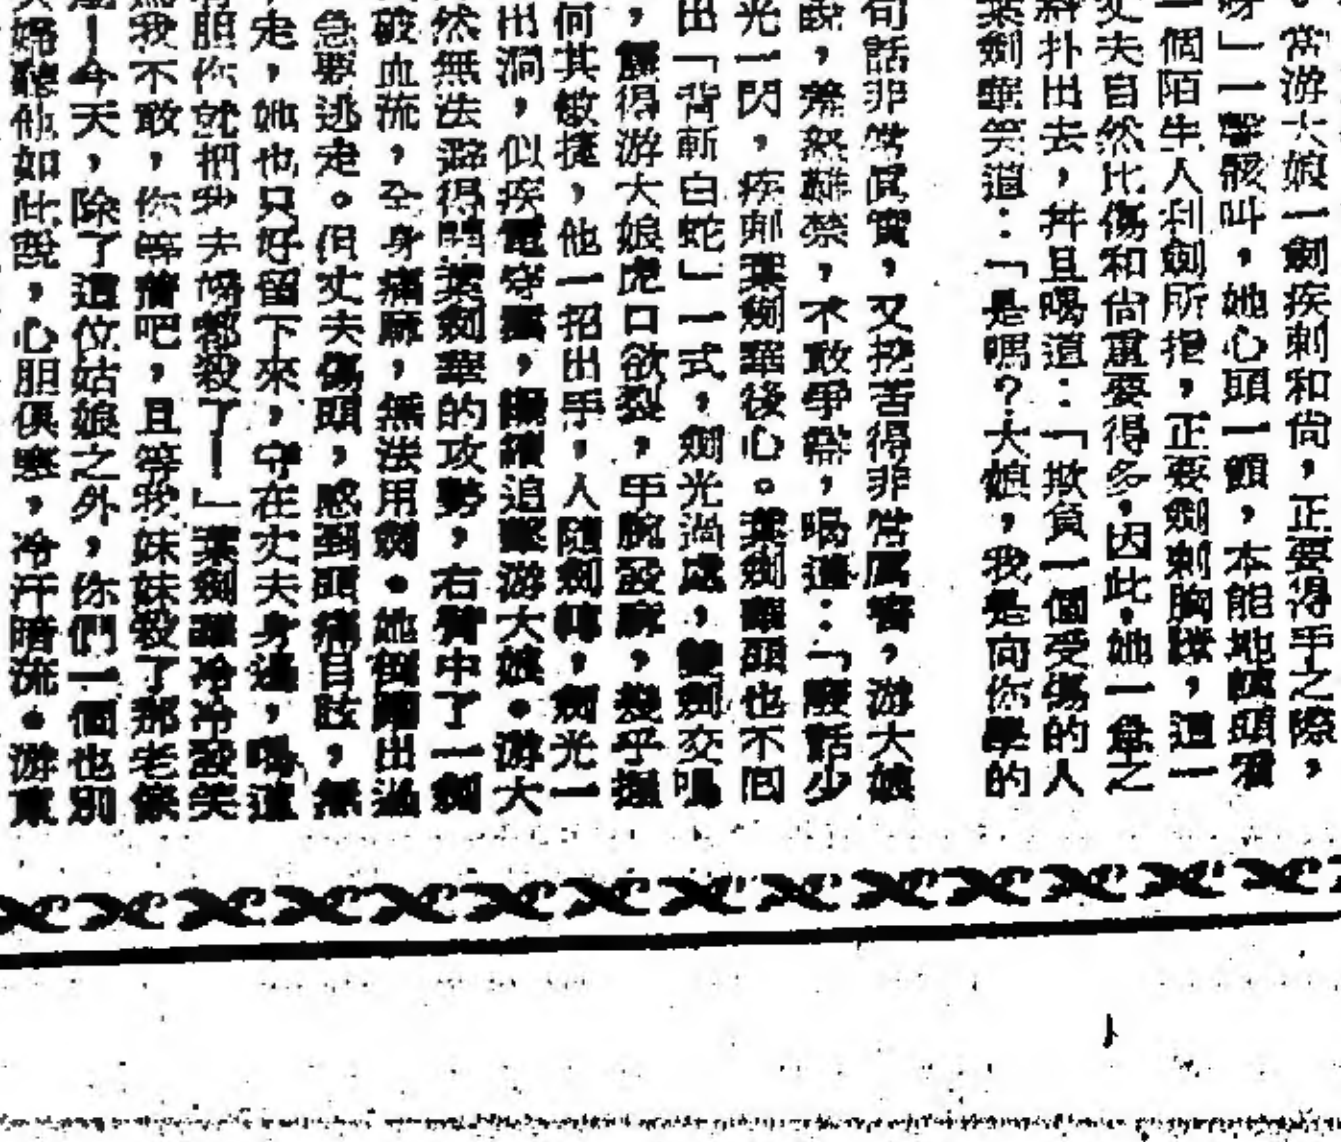 。當游大娘一劍疾刺和尙，正要得手之際，
呀」一聲駭叫，她心頭一顫，本能地轉頭看
一個陌生人利劍所指，正要劍刺胸膛，這一
丈夫自然比傷和尙重要得多，因此，她一急之
扑出去，幷且喝道：「欺負一個受傷的人
葉劍華笑道：「是嗎？大娘，我是向你學的
句話非常眞實，又挖苦得非常厲害，游大娘
說，羞怒難禁，不敢爭辯，喝道：「廢話少
光一閃，疾刺葉劍華後心。葉劍華頭也不回
出「背斬白蛇」一式，劍光過處，雙劍交鳴
，震得游大娘虎口欲裂，手腕發麻，幾乎握
何其敏捷，他一招出手，人隨劍轉，劍光一
出洞，似疾電穿雲，繼續追擊游大娘。游大
然無法避得開葉劍華的攻勢，右臂中了一劍
破血流，全身痛麻，無法用劍。她倒躍出過
急要逃走。但丈夫傷頭，感到頭痛目眩，無
走，她也只好留下來，守在丈夫身邊，喝道
胆你就把我夫婦都殺了！」葉劍華冷冷發笑
我不敢，你等着吧，且等我妹妹殺了那老傢
！今天，除了這位姑娘之外，你們一個也別
婦聽他如此說，心胆俱寒，冷汗暗流。游東